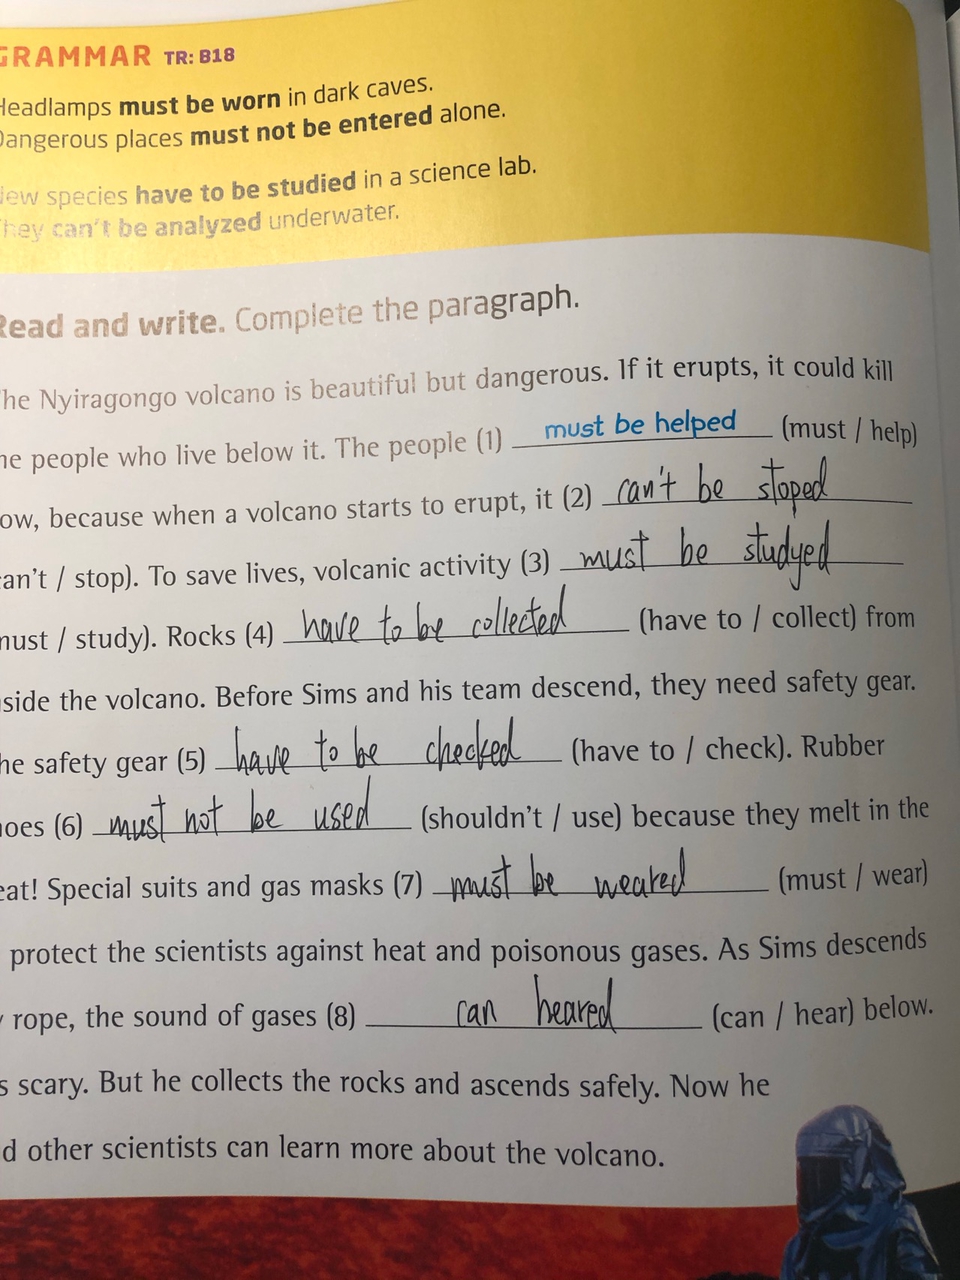 GRAMMAR TR: B18
Headlamps must be worn in dark caves.
Dangerous places must not be entered alone.
New species have to be studied in a science lab.
They can't be analyzed underwater.
Read and write. Complete the paragraph.
The Nyiragongo volcano is beautiful but dangerous. If it erupts, it could kill
he people who live below it. The people (1) must be helped (must / help)
ow, because when a volcano starts to erupt, it (2) can't be stoped
can't / stop). To save lives, volcanic activity (3) must be studyed
must / study). Rocks (4) have to be collected (have to / collect) from
side the volcano. Before Sims and his team descend, they need safety gear.
he safety gear (5) have to be checked (have to / check). Rubber
hoes (6) must not be used (shouldn't / use) because they melt in the
eat! Special suits and gas masks (7) must be weared (must / wear)
protect the scientists against heat and poisonous gases. As Sims descends
y rope, the sound of gases (8) can heared (can / hear) below.
s scary. But he collects the rocks and ascends safely. Now he
d other scientists can learn more about the volcano.